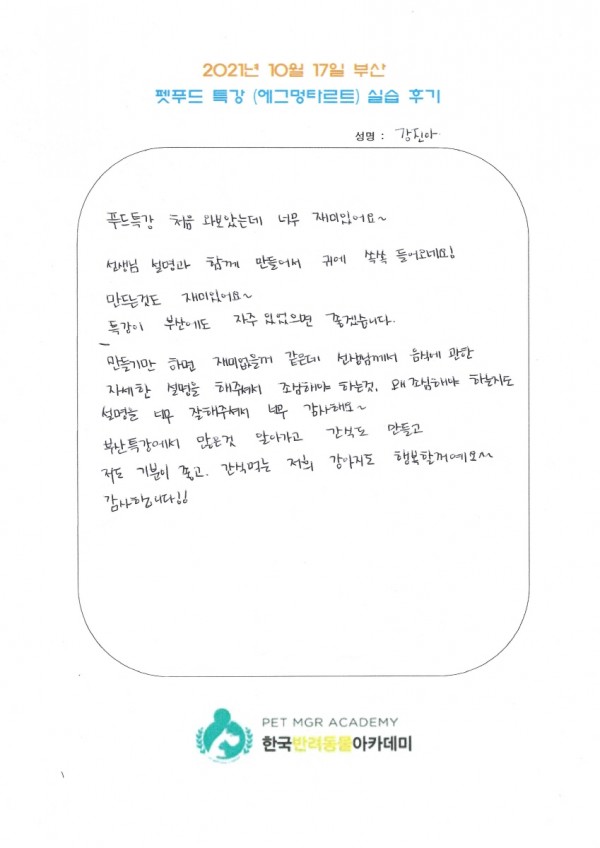 2021년 10월 17일 부산
펫푸드 특강 (에그멍타르트) 실습 후기
성명 : 강진아
푸드특강 처음 와보았는데 너무 재미있어요~
선생님 설명과 함께 만들어서 귀에 쏙쏙 들어오네요!
만드는것도 재미있어요~
특강이 부산에도 자주 있었으면 좋겠습니다.
만들기만 하면 재미없을꺼 같은데 선생님께서 음식에 관한
자세한 설명을 해주셔서 조심해야 하는것, 왜 조심해야 하는지도
설명을 너무 잘해주셔서 너무 감사해요~
부산특강에서 많은것 알아가고 간식도 만들고
저도 기분이 좋고, 간식먹는 저희 강아지도 행복할꺼예요~~
감사합니다!!
PET MGR ACADEMY
한국반려동물아카데미